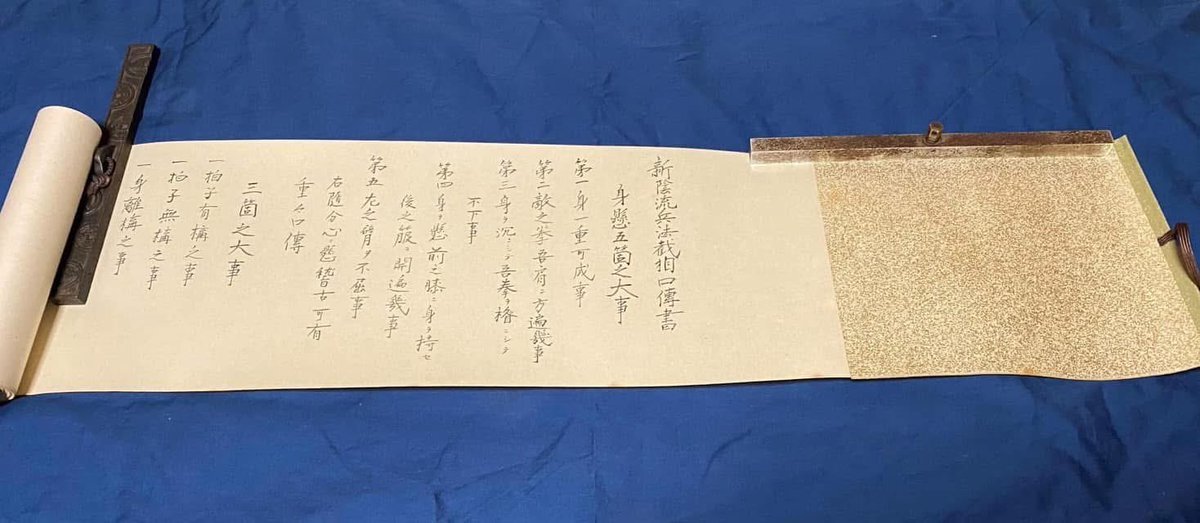 新陰流兵法截相口傳書
身懸五箇之大事
第一身一重可成事
第二敵之拳吾肩ニ方遍幾事
第三身ヲ沉ニシテ吾拳ヲ楯ニシテ
不下事
第四身ヲ懸前之膝ニ身ヲ持セ
後之𦡀ヲ開遍幾事
第五左之臂ヲ不屈事
右随分心ニ懸稽古可有
重々口傳
三箇之大事
一拍子有構之事
一拍子無構之事
一身離構之事